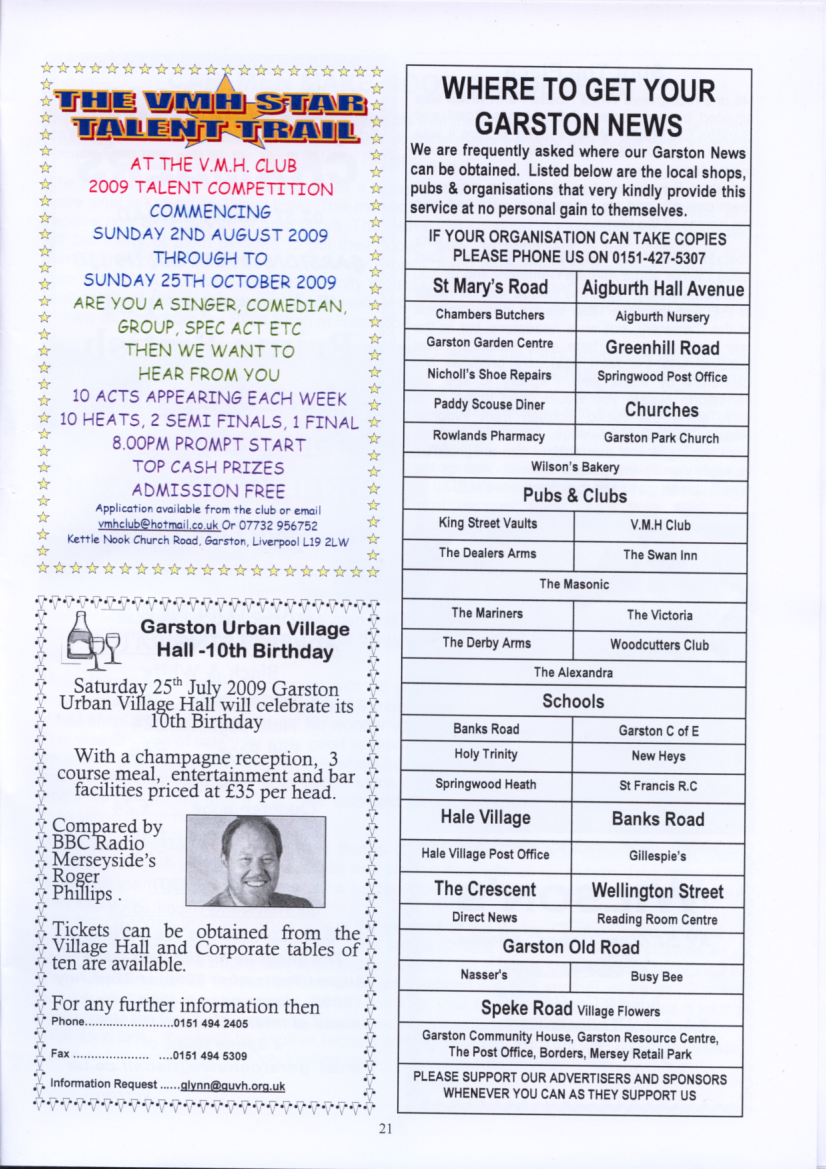 THE VMH STAR
TALENT TRAIL
AT THE V.M.H. CLUB
2009 TALENT COMPETITION
COMMENCING
SUNDAY 2ND AUGUST 2009
THROUGH TO
SUNDAY 25TH OCTOBER 2009
ARE YOU A SINGER, COMEDIAN,
GROUP, SPEC ACT ETC
THEN WE WANT TO
HEAR FROM YOU
10 ACTS APPEARING EACH WEEK
10 HEATS, 2 SEMI FINALS, 1 FINAL
8.00PM PROMPT START
TOP CASH PRIZES
ADMISSION FREE
Application available from the club or email
vmhclub@hotmail.co.uk Or 07732 956752
Kettle Nook Church Road, Garston, Liverpool L19 2LW
Garston Urban Village
Hall -10th Birthday
Saturday 25th July 2009 Garston
Urban Village Hall will celebrate its
10th Birthday
With a champagne reception, 3
course meal, entertainment and bar
facilities priced at £35 per head.
Compared by
BBC Radio
Merseyside's
Roger
Phillips .
Tickets can be obtained from the
Village Hall and Corporate tables of
ten are available.
For any further information then
Phone........................0151 494 2405
Fax ..................... ....0151 494 5309
Information Request ......glynn@guvh.org.uk
WHERE TO GET YOUR
GARSTON NEWS
We are frequently asked where our Garston News
can be obtained. Listed below are the local shops,
pubs & organisations that very kindly provide this
service at no personal gain to themselves.
IF YOUR ORGANISATION CAN TAKE COPIES
PLEASE PHONE US ON 0151-427-5307
St Mary's Road Aigburth Hall Avenue
Chambers Butchers Aigburth Nursery
Garston Garden Centre Greenhill Road
Nicholl's Shoe Repairs Springwood Post Office
Paddy Scouse Diner Churches
Rowlands Pharmacy Garston Park Church
Wilson's Bakery
Pubs & Clubs
King Street Vaults V.M.H Club
The Dealers Arms The Swan Inn
The Masonic
The Mariners The Victoria
The Derby Arms Woodcutters Club
The Alexandra
Schools
Banks Road Garston C of E
Holy Trinity New Heys
Springwood Heath St Francis R.C
Hale Village Banks Road
Hale Village Post Office Gillespie's
The Crescent Wellington Street
Direct News Reading Room Centre
Garston Old Road
Nasser's Busy Bee
Speke Road Village Flowers
Garston Community House, Garston Resource Centre,
The Post Office, Borders, Mersey Retail Park
PLEASE SUPPORT OUR ADVERTISERS AND SPONSORS
WHENEVER YOU CAN AS THEY SUPPORT US
21